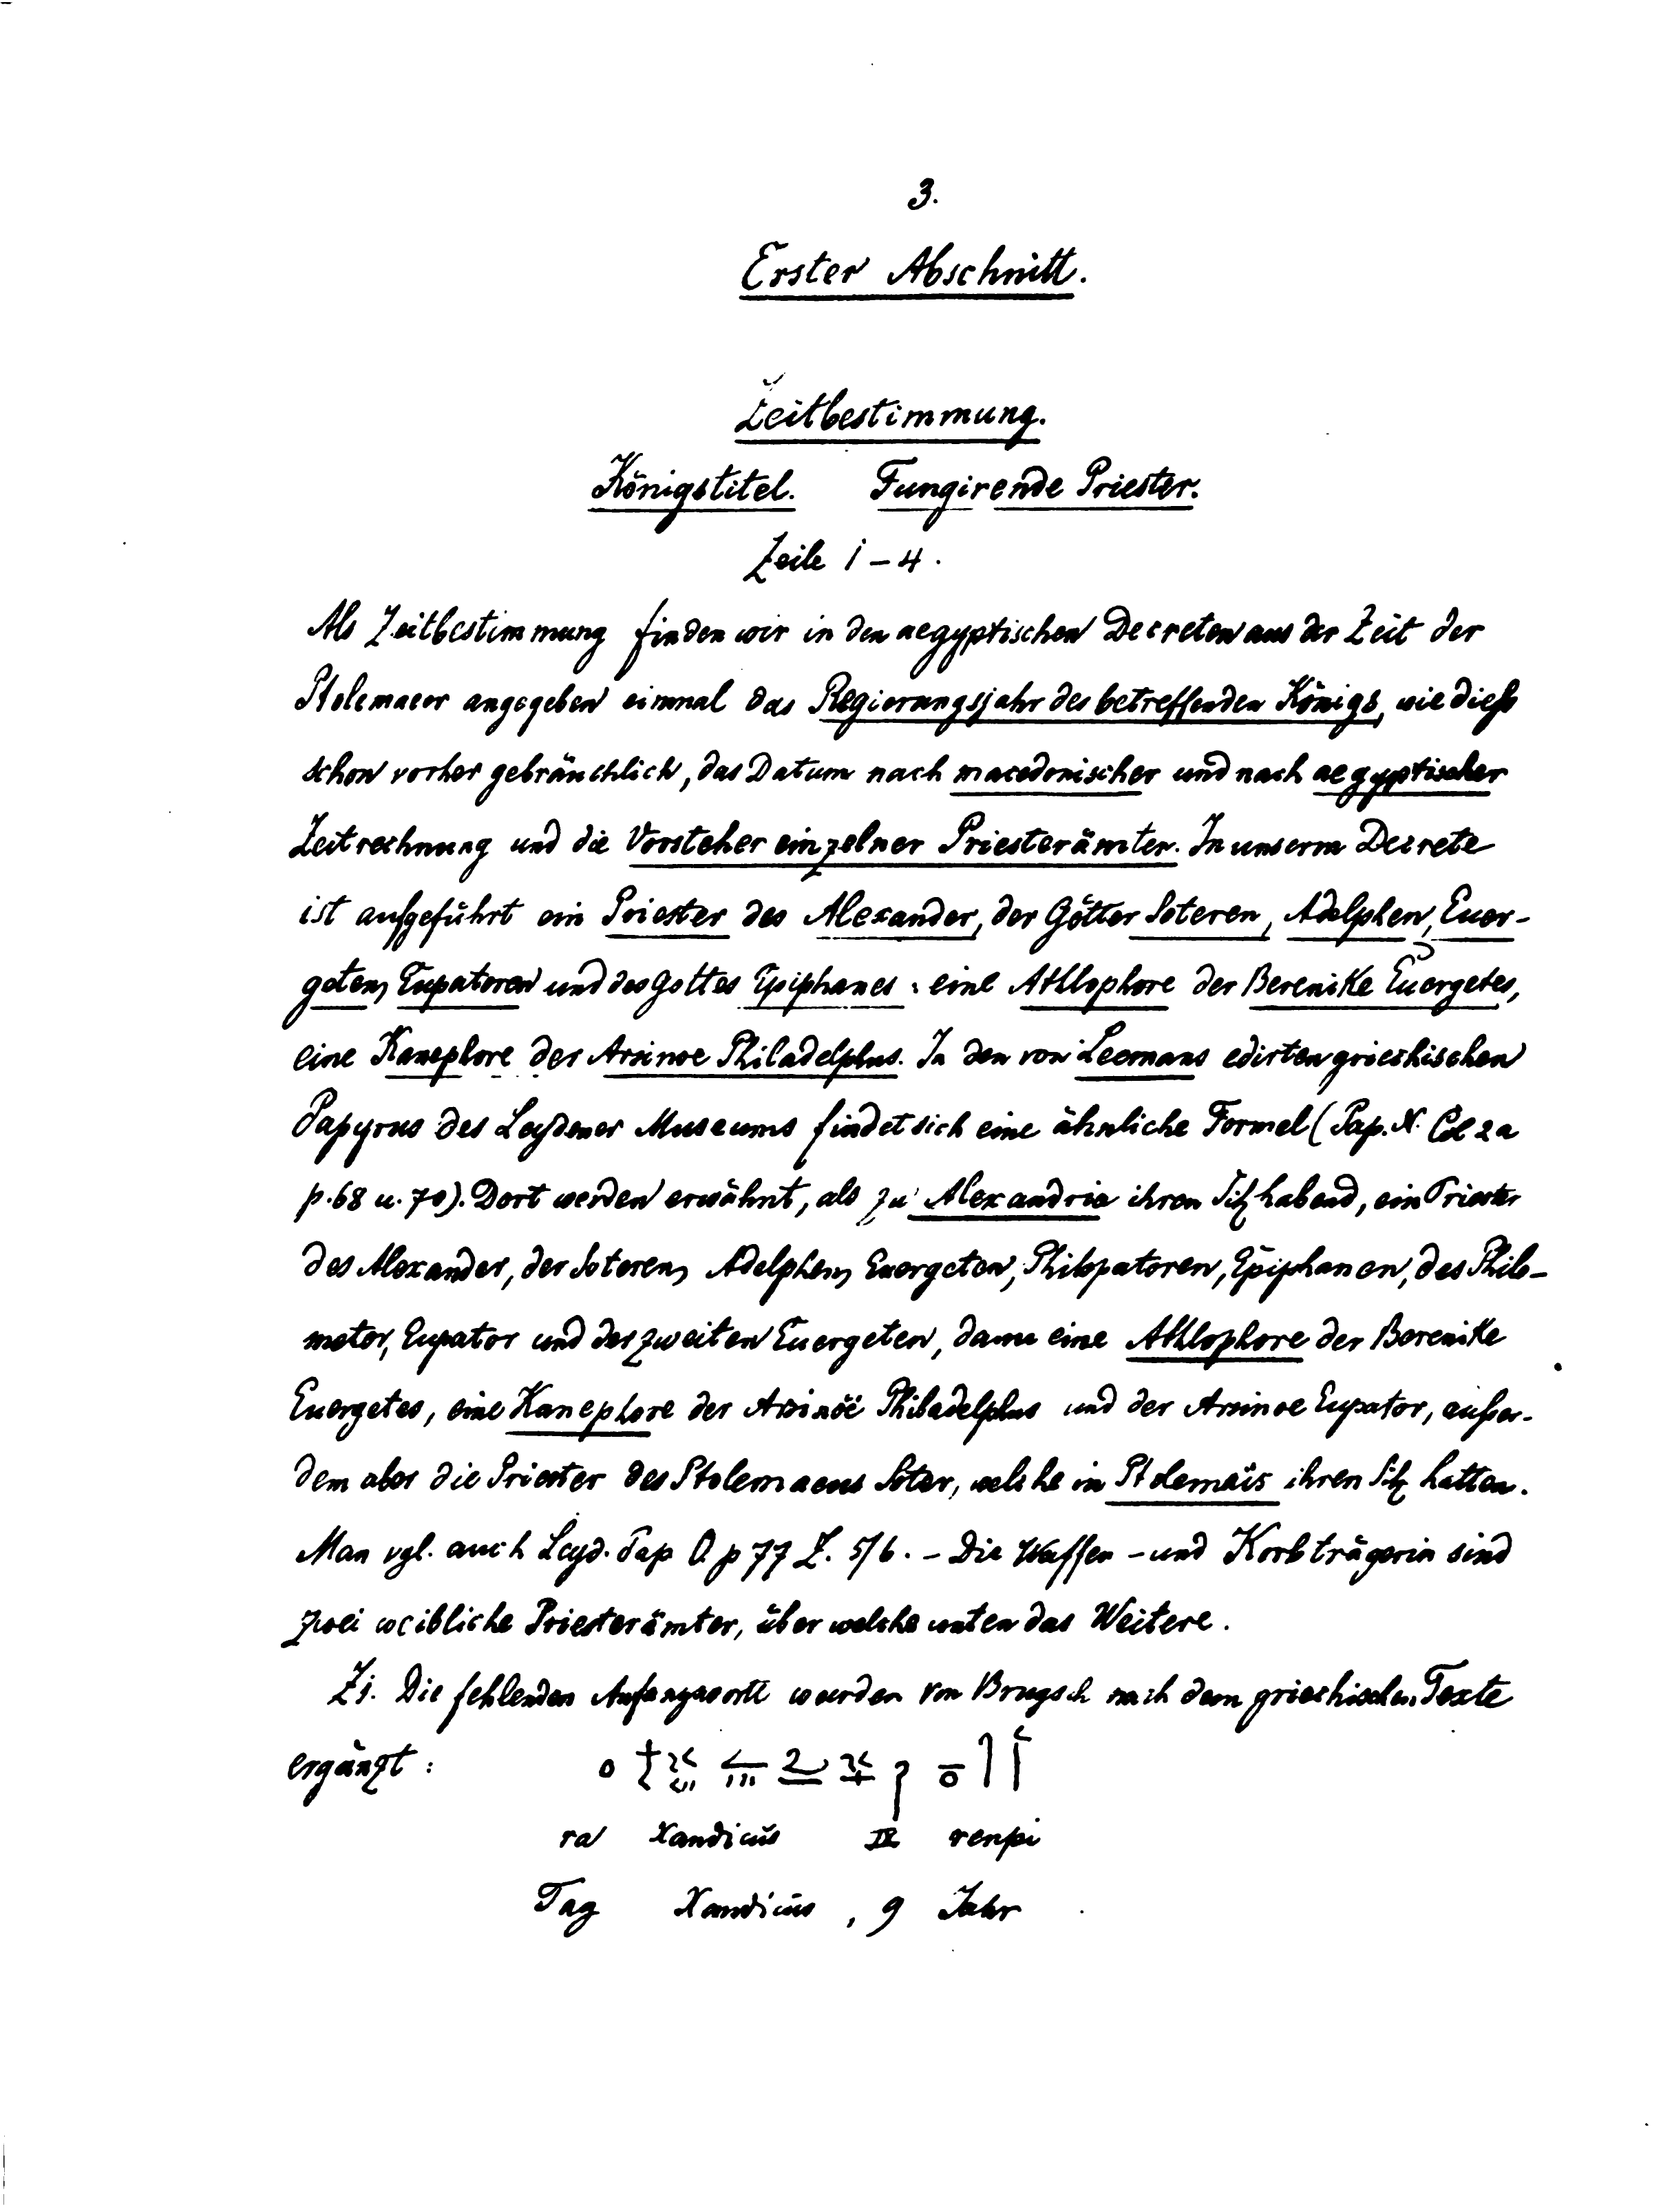 3.
Erster Abschnitt.
Zeitbestimmung.
Königstitel. Fungirende Priester.
Zeile 1–4.
Als Zeitbestimmung finden wir in den aegyptischen Decreten aus der Zeit der
Ptolemaeer angegeben einmal das Regierungsjahr des betreffenden Königs, wie dieß
schon vorher gebräuchlich, das Datum nach macedonischer und nach aegyptischer
Zeitrechnung und die Vorsteher einzelner Priesterämter. In unserm Decrete
ist aufgeführt ein Priester des Alexander, der Götter Soteren, Adelphen, Euer-
geten, Eupatoren und des Gottes Epiphanes: eine Athlophore der Berenike Euergetes,
eine Kanephore der Arsinoe Philadelphus. In den von Leemans edirten griechischen
Papyrus des Leydener Museums findet sich eine ähnliche Formel (Pap. N. Col 2a
p. 68 u. 70). Dort werden erwähnt, als zu Alexandria ihren Sitz habend, ein Priester
des Alexander, der Soteren, Adelphen, Euergeten, Philopatoren, Epiphanen, des Philo-
metor, Eupator und der zweiten Euergeten, dann eine Athlophore der Berenike
Euergetes, eine Kanephore der Arsinöë Philadelphus und der Arsinoe Eupator, außer-
dem aber die Priester des Ptolemaeus Soter, welche in Ptolemäis ihren Sitz hatten.
Man vgl. auch Leyd. Pap O p 77 Z. 5/6. – Die Waffen- und Korbträgerin sind
zwei weibliche Priesterämter, über welche unten das Weitere.
Z 1. Die fehlenden Anfangsworte wurden von Brugsch nach dem griechischen Texte
ergänzt:
ra Xandicus IX renpi
Tag Xandicus, 9 Jahr